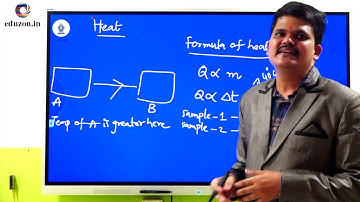 eduzon.in
Heat
Formula of heat
Q ∝ m
Q ∝ Δt
A
B
Temp of A is greater here
sample-1 -
sample-2 -